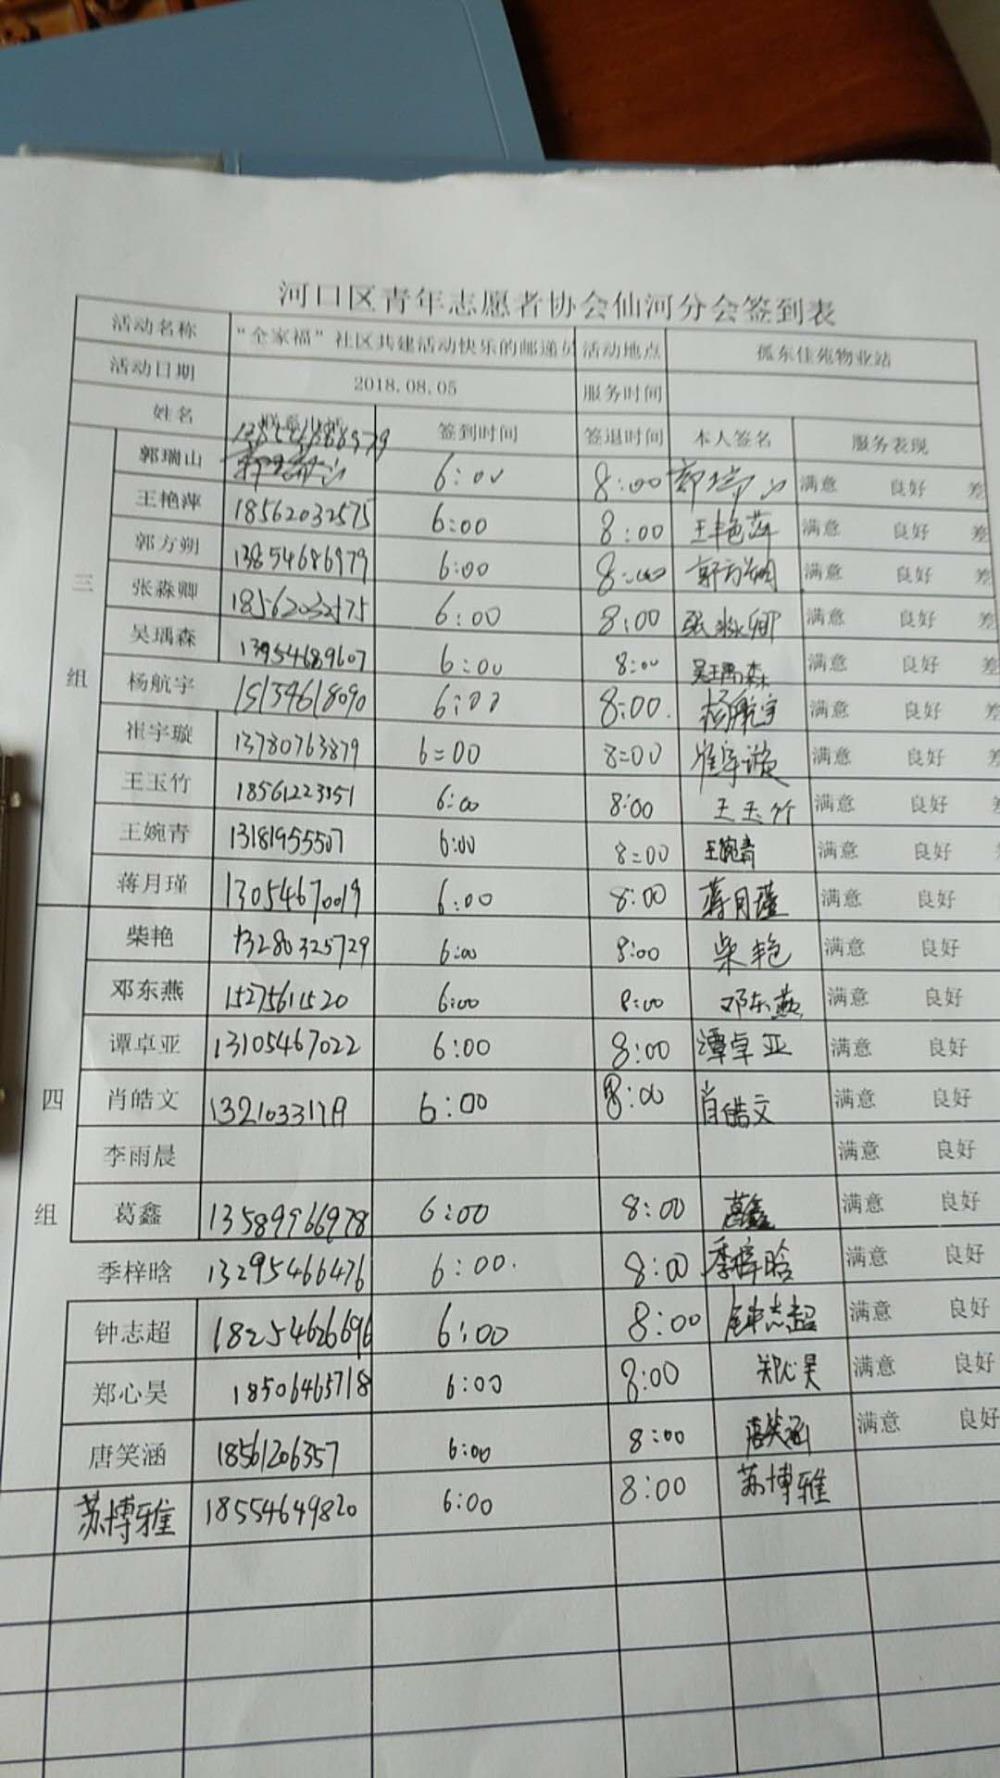 河口区青年志愿者协会仙河分会签到表
活动名称 “全家福”社区共建活动快乐的邮递员 活动地点 孤东佳苑物业站
活动日期 2018.08.05 服务时间
姓名 签到时间 签退时间 本人签名 服务表现
三组
郭瑞山 6:00 8:00 郭瑞山 满意 良好 差
王艳萍 18562032575 6:00 8:00 王艳萍 满意 良好 差
郭方朔 13854686979 6:00 8:00 郭方朔 满意 良好 差
张淼卿 18562032575 6:00 8:00 张淼卿 满意 良好 差
吴瑀森 13954689607 6:00 8:00 吴瑀森 满意 良好 差
杨航宇 15154618090 6:00 8:00. 杨航宇 满意 良好 差
崔宇璇 13780763879 6=00 8=00 崔宇璇 满意 良好 差
王玉竹 18561223351 6:00 8:00 王玉竹 满意 良好 差
王婉青 13181955507 6:00 8=00 王婉青 满意 良好
蒋月瑾 13054670019 6:00 8:00 蒋月瑾 满意 良好
四组
柴艳 13280325729 6:00 8:00 柴艳 满意 良好
邓东燕 15275611520 6:00 8:00 邓东燕 满意 良好
谭卓亚 13105467022 6:00 8:00 谭卓亚 满意 良好
肖皓文 6:00 8:00 肖皓文 满意 良好
李雨晨 满意 良好
葛鑫 13589966978 6:00 8:00 葛鑫 满意 良好
季梓晗 13295466476 6:00. 8:00 季梓晗 满意 良好
钟志超 18254626696 6:00 8:00 钟志超 满意 良好
郑心昊 18506465718 6:00 8:00 郑心昊 满意 良好
唐笑涵 18561206357 6:00 8:00 唐笑涵 满意 良好
苏博雅 18554649820 6:00 8:00 苏博雅